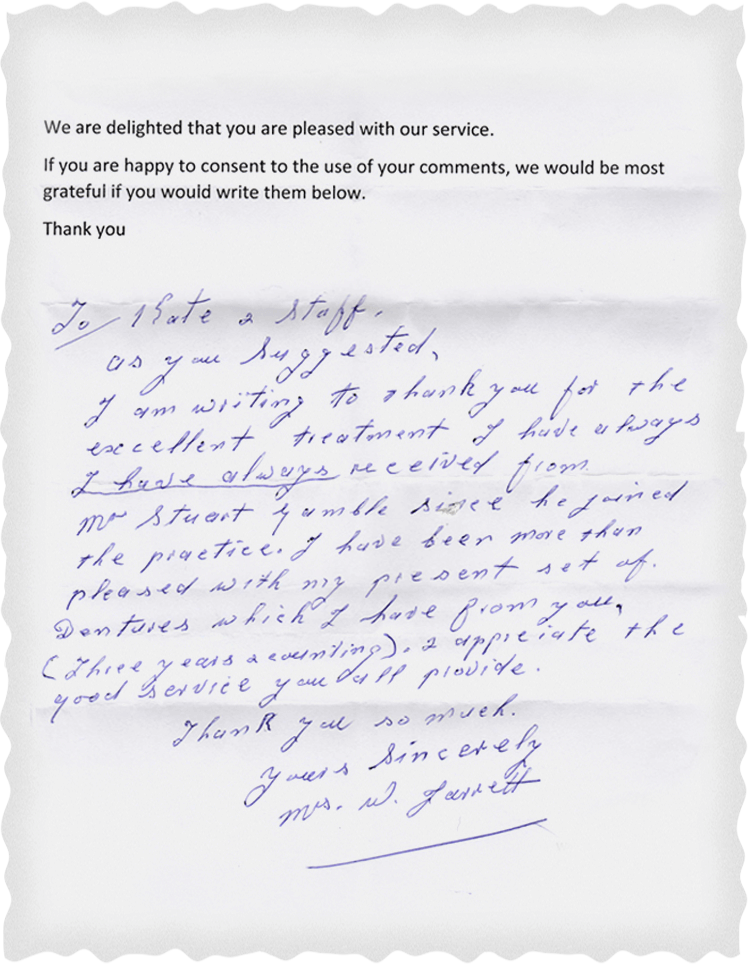 We are delighted that you are pleased with our service.
If you are happy to consent to the use of your comments, we would be most
grateful if you would write them below.
Thank you
To Kate & Staff,
as you suggested,
I am writing to thank you for the
excellent treatment I have always
I have always received from
Mr Stuart Gamble since he joined
the practice. I have been more than
pleased with my present set of.
Dentures which I have from you,
(Three years & counting). & appreciate the
good service you all provide.
Thank you so much.
Yours Sincerely
Mrs. W. Jarrett